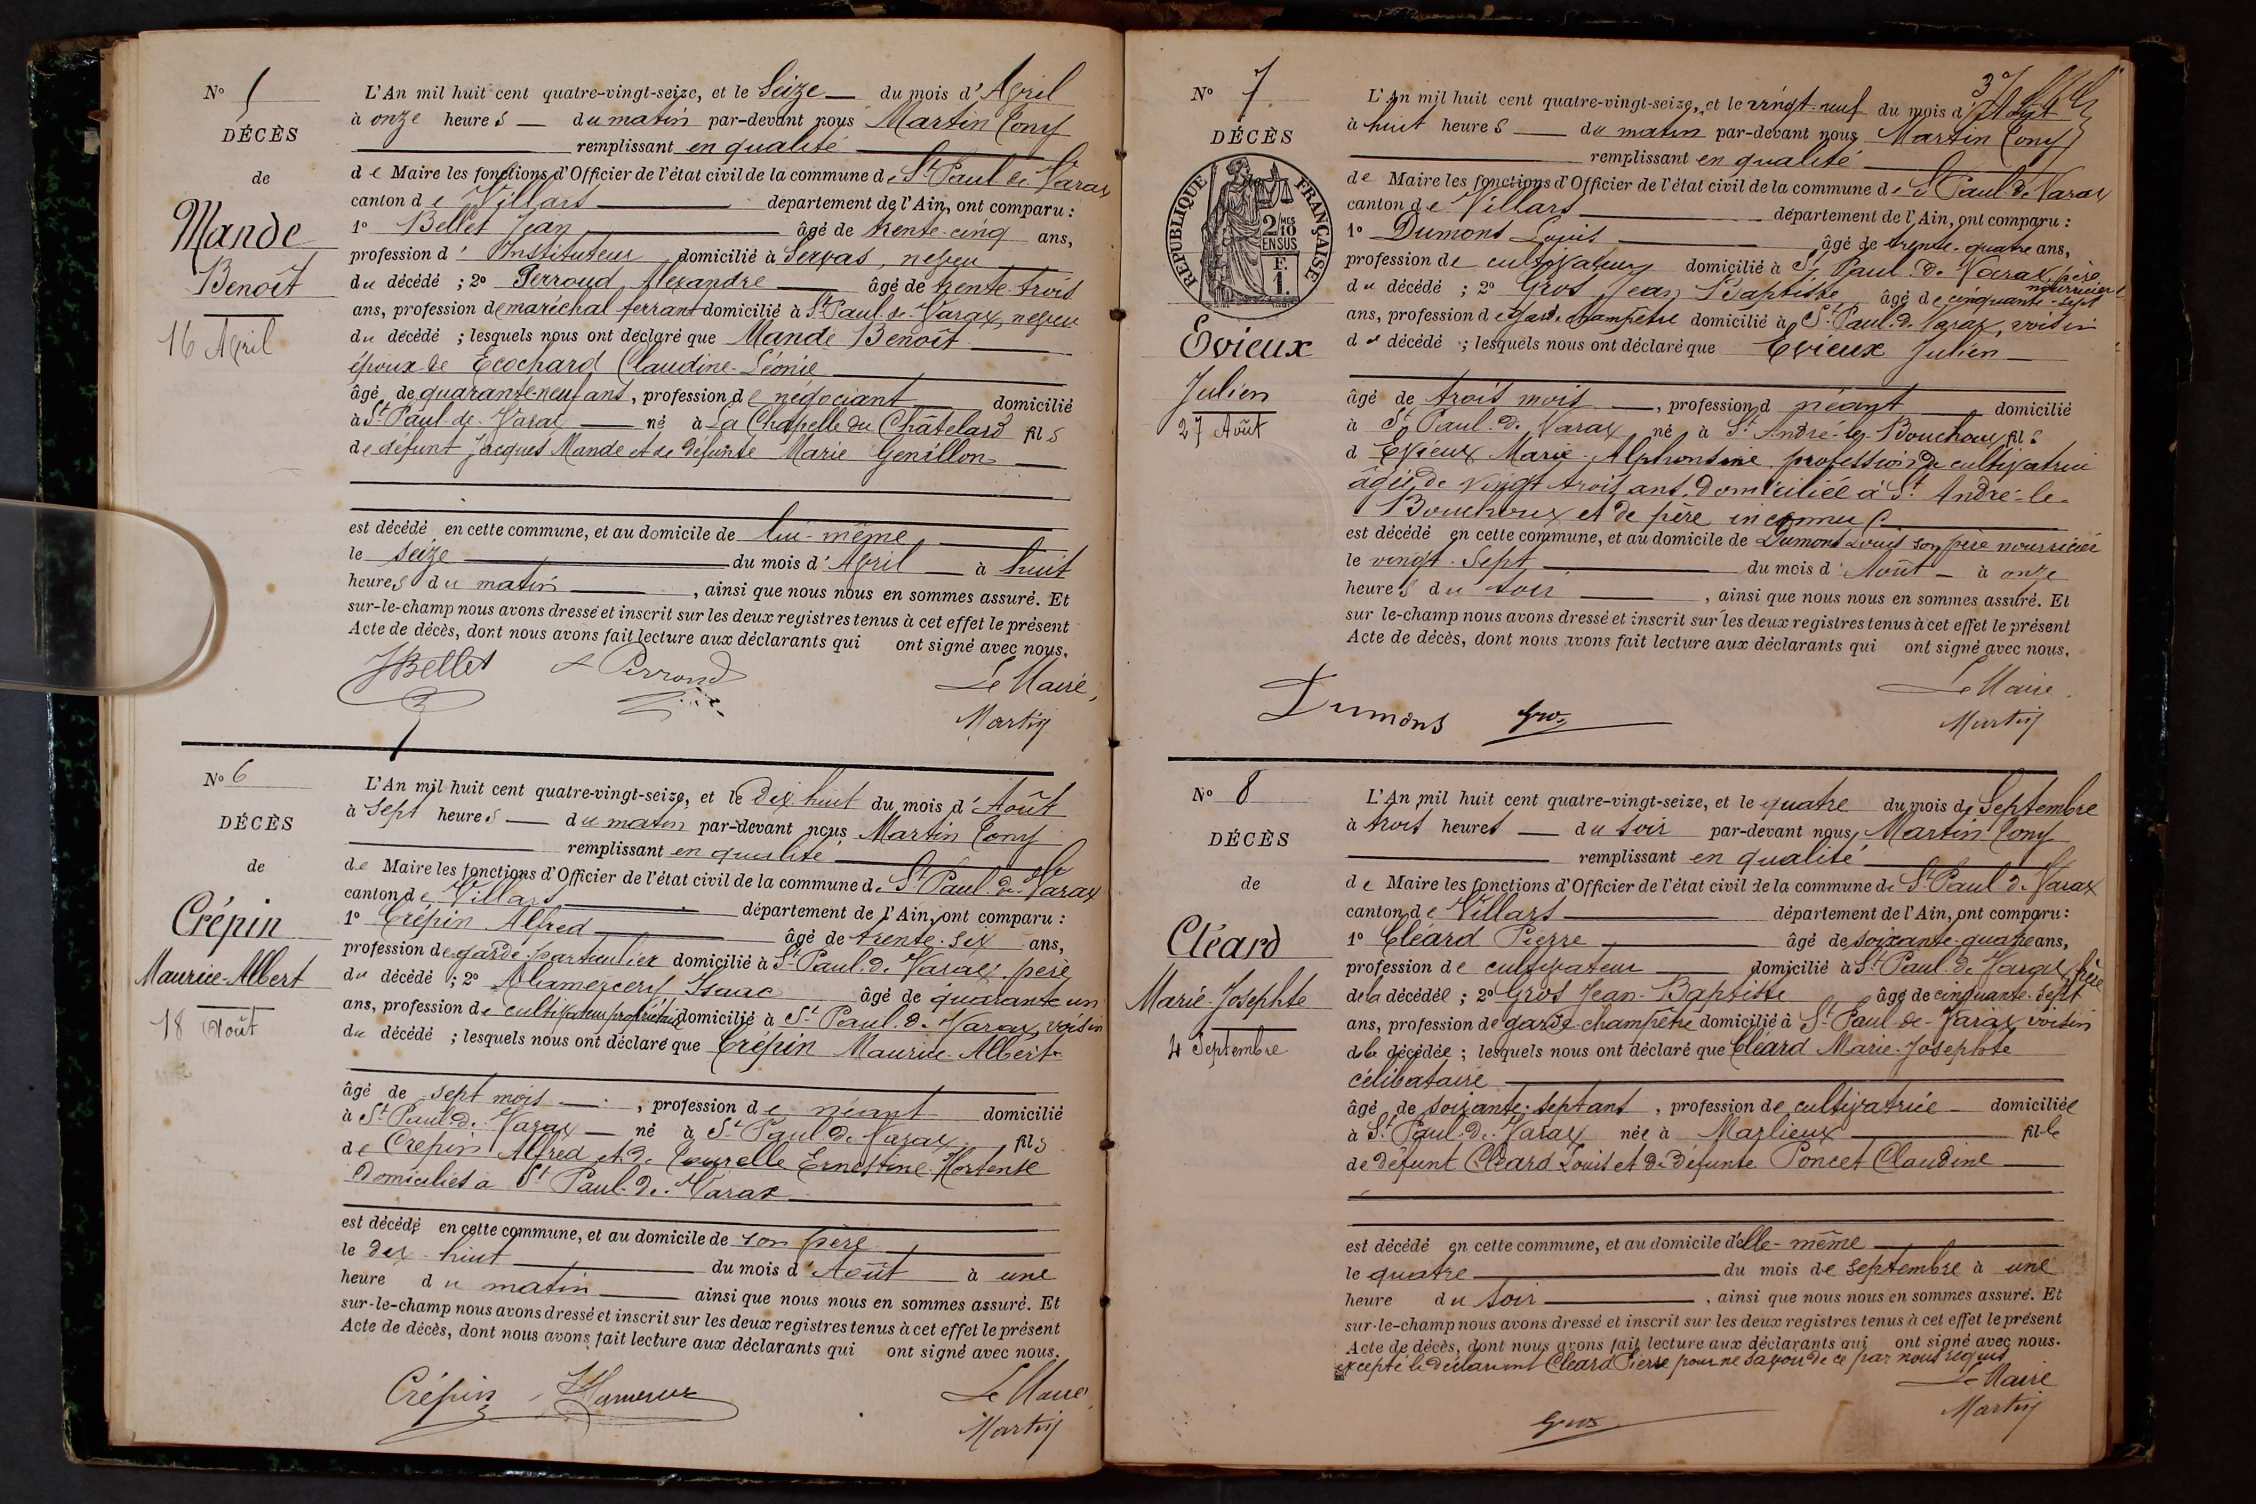 N° 5
DÉCÈS
de
Mande
Benoît
16 Avril
L'An mil huit cent quatre-vingt-seize, et le Seize du mois d'Avril
à onze heures du matin par-devant nous Martin Tony
remplissant en qualité
de Maire les fonctions d'Officier de l'état civil de la commune de St Paul de Varax
canton de Villars département de l'Ain, ont comparu :
1° Bellet Jean âgé de trente-cinq ans,
profession d'Instituteur domicilié à Servas, neveu
du décédé ; 2° Perroud Alexandre âgé de trente trois
ans, profession de maréchal ferrant domicilié à St Paul-de-Varax, neveu
du décédé ; lesquels nous ont déclaré que Mande Benoît
époux de Ecochard Claudine-Léonie
âgé de quarante-neuf ans, profession de négociant domicilié
à St Paul-de-Varax né à La Chapelle du Châtelard fils
de défunt Jacques Mande et de défunte Marie Genillon
est décédé en cette commune, et au domicile de lui-même
le seize du mois d'Avril à huit
heures du matin, ainsi que nous nous en sommes assuré. Et
sur-le-champ nous avons dressé et inscrit sur les deux registres tenus à cet effet le présent
Acte de décès, dont nous avons fait lecture aux déclarants qui ont signé avec nous.
JBellet A Perroud Le Maire,
Martin
N° 6
DÉCÈS
de
Crépin
Maurice-Albert
18 Août
L'An mil huit cent quatre-vingt-seize, et le dix huit du mois d'Août
à sept heures du matin par-devant nous Martin Tony
remplissant en qualité
de Maire les fonctions d'Officier de l'état civil de la commune de St Paul-de-Varax
canton de Villars département de l'Ain, ont comparu :
1° Crépin Alfred âgé de trente-six ans,
profession de garde particulier domicilié à St Paul-de-Varax, père
du décédé ; 2° Isaac âgé de quarante un
ans, profession de cultivateur propriétaire domicilié à St Paul-de-Varax, voisin
du décédé ; lesquels nous ont déclaré que Crépin Maurice-Albert
âgé de sept mois, profession de néant domicilié
à St Paul-de-Varax né à St Paul de Varax fils
de Crépin Alfred et de Ernestine-Hortense
domiciliés à St Paul-de-Varax
est décédé en cette commune, et au domicile de son père
le dix-huit du mois d'Août à une
heure du matin ainsi que nous nous en sommes assuré. Et
sur-le-champ nous avons dressé et inscrit sur les deux registres tenus à cet effet le présent
Acte de décès, dont nous avons fait lecture aux déclarants qui ont signé avec nous.
Crépin Le Maire
Martin
37
N° 7
DÉCÈS
RÉPUBLIQUE FRANÇAISE
2/10 MES
EN SUS
F.
1.
Evieux
Julien
27 Août
L'An mil huit cent quatre-vingt-seize, et le vingt-neuf du mois d'Août
à huit heures du matin par-devant nous Martin Tony
remplissant en qualité
de Maire les fonctions d'Officier de l'état civil de la commune de St Paul de Varax
canton de Villars département de l'Ain, ont comparu :
1° Dumons Louis âgé de trente-quatre ans,
profession de cultivateur domicilié à St Paul-de-Varax, père
nourricier
du décédé ; 2° Gros Jean Baptiste âgé de cinquante-sept
ans, profession de garde champêtre domicilié à St Paul-de-Varax, voisin
du décédé ; lesquels nous ont déclaré que Evieux Julien
âgé de trois mois, profession d néant domicilié
à St Paul-de-Varax né à St André-le-Bouchoux fils
d Evieux Marie-Alphonsine, profession de cultivatrice
âgée de vingt trois ans, domiciliée à St André-le-
Bouchoux et de père inconnu
est décédé en cette commune, et au domicile de Dumons Louis son père nourricier
le vingt-sept du mois d'Août à onze
heures du soir, ainsi que nous nous en sommes assuré. Et
sur le-champ nous avons dressé et inscrit sur les deux registres tenus à cet effet le présent
Acte de décès, dont nous avons fait lecture aux déclarants qui ont signé avec nous.
Le Maire.
Dumons Gros Martin
N° 8
DÉCÈS
de
Cléard
Marie-Josephte
4 Septembre
L'An mil huit cent quatre-vingt-seize, et le quatre du mois de Septembre
à trois heures du soir par-devant nous, Martin Tony
remplissant en qualité
de Maire les fonctions d'Officier de l'état civil de la commune de St Paul de Varax
canton de Villars département de l'Ain, ont comparu :
1° Cléard Pierre âgé de soixante-quatre ans,
profession de cultivateur domicilié à St Paul-de-Varax, frère
de la décédée ; 2° Gros Jean-Baptiste âgé de cinquante-sept
ans, profession de garde-champêtre domicilié à St Paul-de-Varax voisin
de la décédée ; lesquels nous ont déclaré que Cléard Marie-Josephte
célibataire
âgé de soixante-sept ans, profession de cultivatrice domiciliée
à St Paul-de-Varax née à Marlieux fille
de défunt Cléard Louis et de défunte Poncet Claudine
est décédé en cette commune, et au domicile d'elle-même
le quatre du mois de septembre à une
heure du soir, ainsi que nous nous en sommes assuré. Et
sur-le-champ nous avons dressé et inscrit sur les deux registres tenus à cet effet le présent
Acte de décès, dont nous avons fait lecture aux déclarants qui ont signé avec nous.
excepté le déclarant Cléard Pierre pour ne savoir de ce par nous requis
Le Maire
Gros Martin